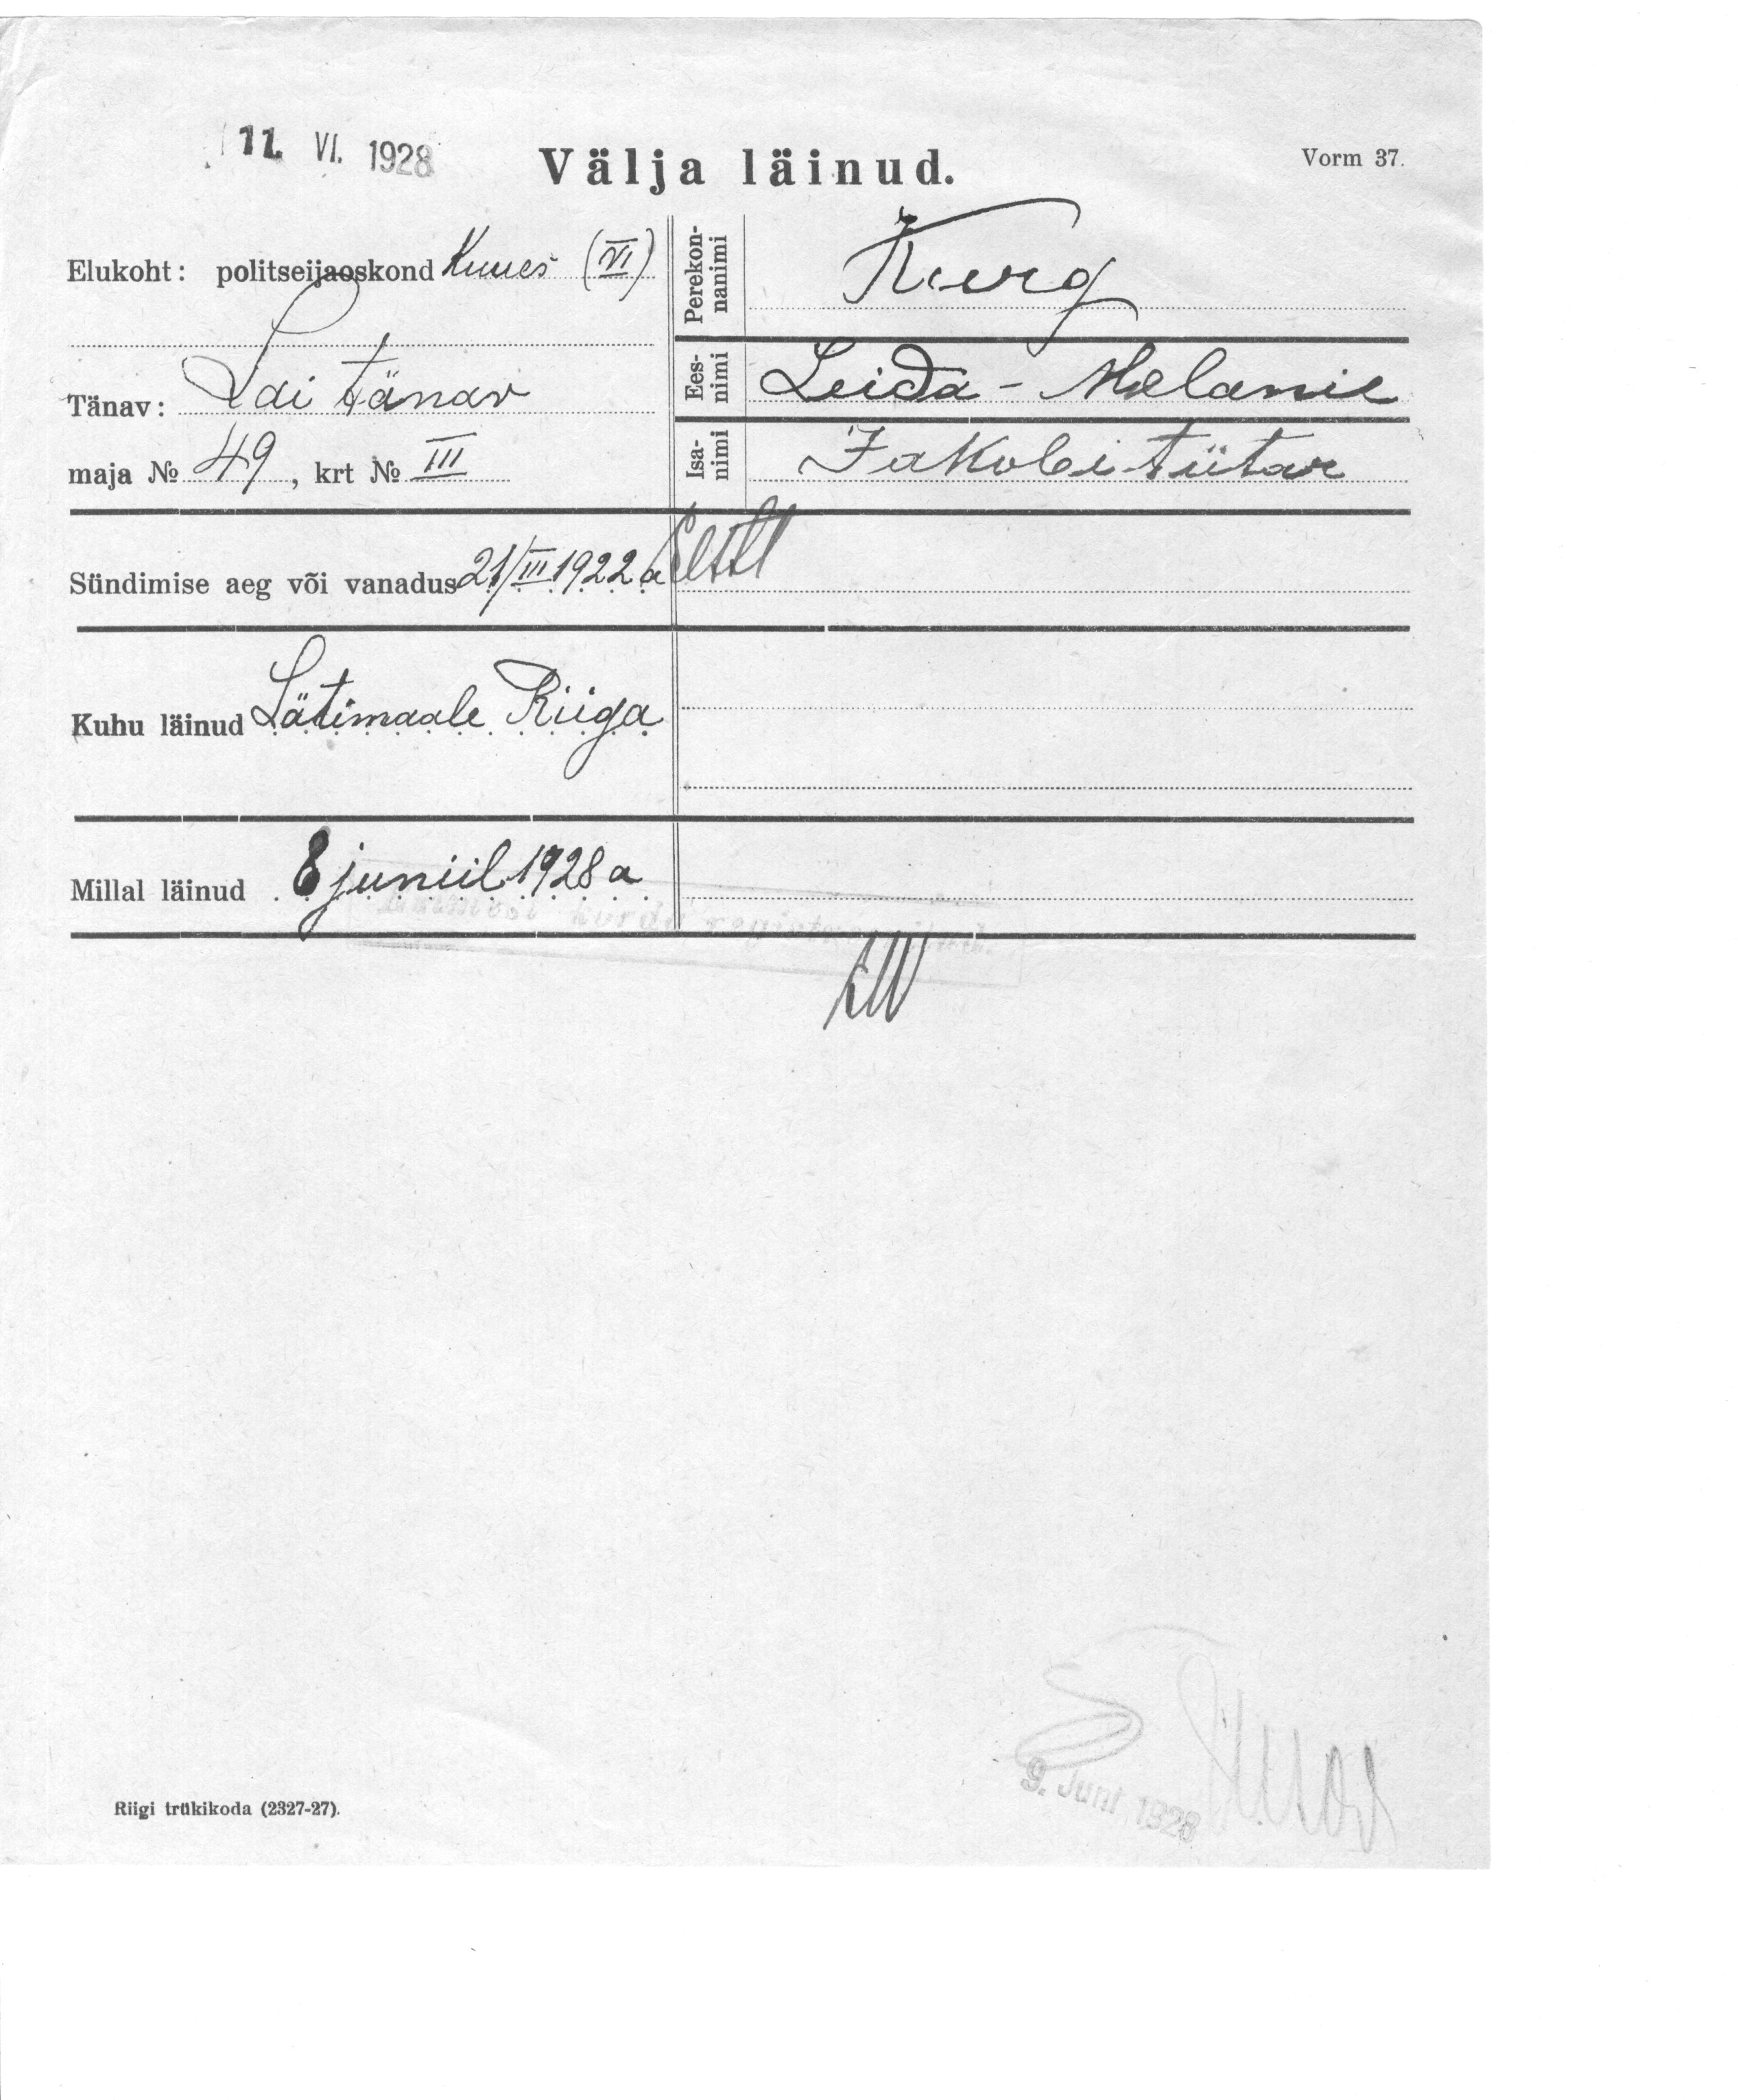 11. VI. 1928
Välja läinud.
Vorm 37.
Elukoht: politseijaoskond Kuues (VI)
Tänav: Lai tänav
maja № 49, krt № III
Perekonnanimi Kurg
Eesnimi Leida - Melanie
Isanimi Jakobi tütar
Sündimise aeg või vanadus 21/III 1922 a
Kuhu läinud Lätimaale Riiga
Millal läinud 8 juuniil 1928 a
9. Juni 1928
Riigi trükikoda (2327-27).